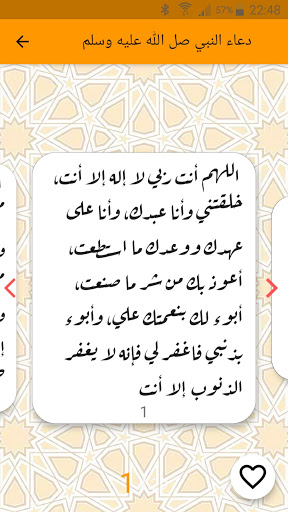 22:48
دعاء النبي صل الله عليه وسلم
اللهم أنت ربي لا إله إلا أنت،
خلقتني وأنا عبدك، وأنا على
عهدك ووعدك ما استطعت،
أعوذ بك من شر ما صنعت،
أبوء لك بنعمتك علي، وأبوء
بذنبي فاغفر لي فإنه لا يغفر
الذنوب إلا أنت
1
1